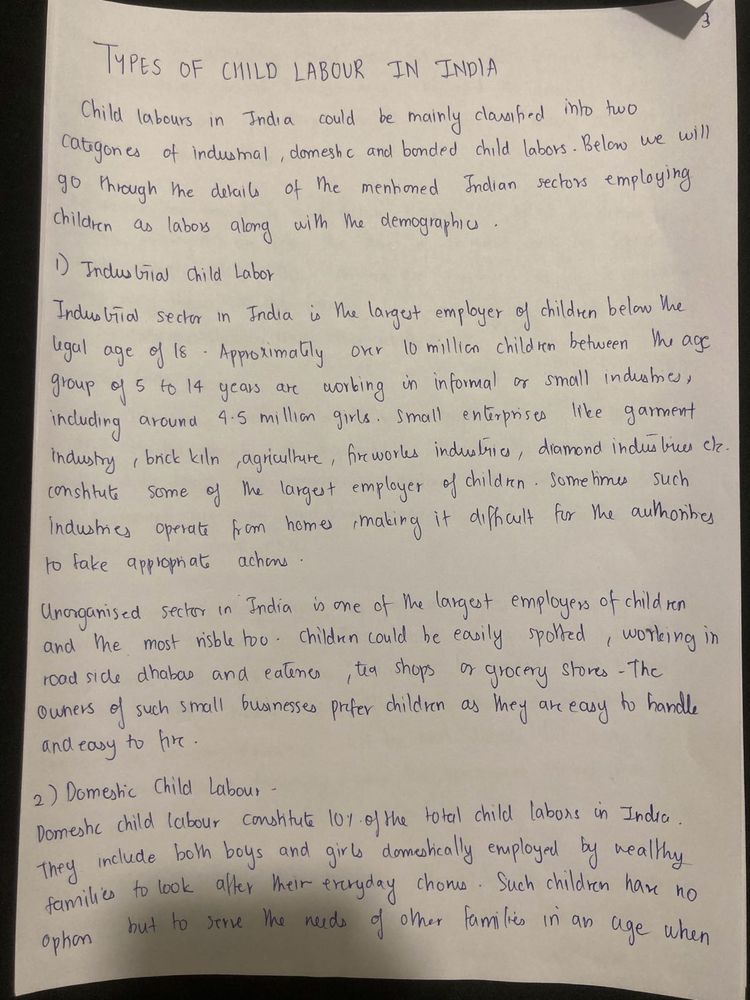 3
TYPES OF CHILD LABOUR IN INDIA
Child labours in India could be mainly classified into two
categories of industrial , domestic and bonded child labors. Below we will
go through the details of the mentioned Indian sectors employing
children as labors along with the demographics .
1) Industrial Child Labor
Industrial sector in India is the largest employer of children below the
legal age of 18 . Approximately over 10 million children between the age
group of 5 to 14 years are working in informal or small industries,
including around 4.5 million girls. Small enterprises like garment
industry , brick kiln , agriculture , fireworks industries , diamond industries etc.
constitute some of the largest employer of children. Sometimes such
industries operate from homes , making it difficult for the authorities
to take appropriate actions .
Unorganised sector in India is one of the largest employers of children
and the most risble too. Children could be easily spotted , working in
road side dhabas and eateries , tea shops or grocery stores - The
owners of such small businesses prefer children as they are easy to handle
and easy to fire .
2) Domestic Child Labour -
Domestic child labour constitute 10% of the total child labors in India .
They include both boys and girls domestically employed by wealthy
families to look after their everyday chorus . Such children have no
option but to serve the needs of other families in an age when